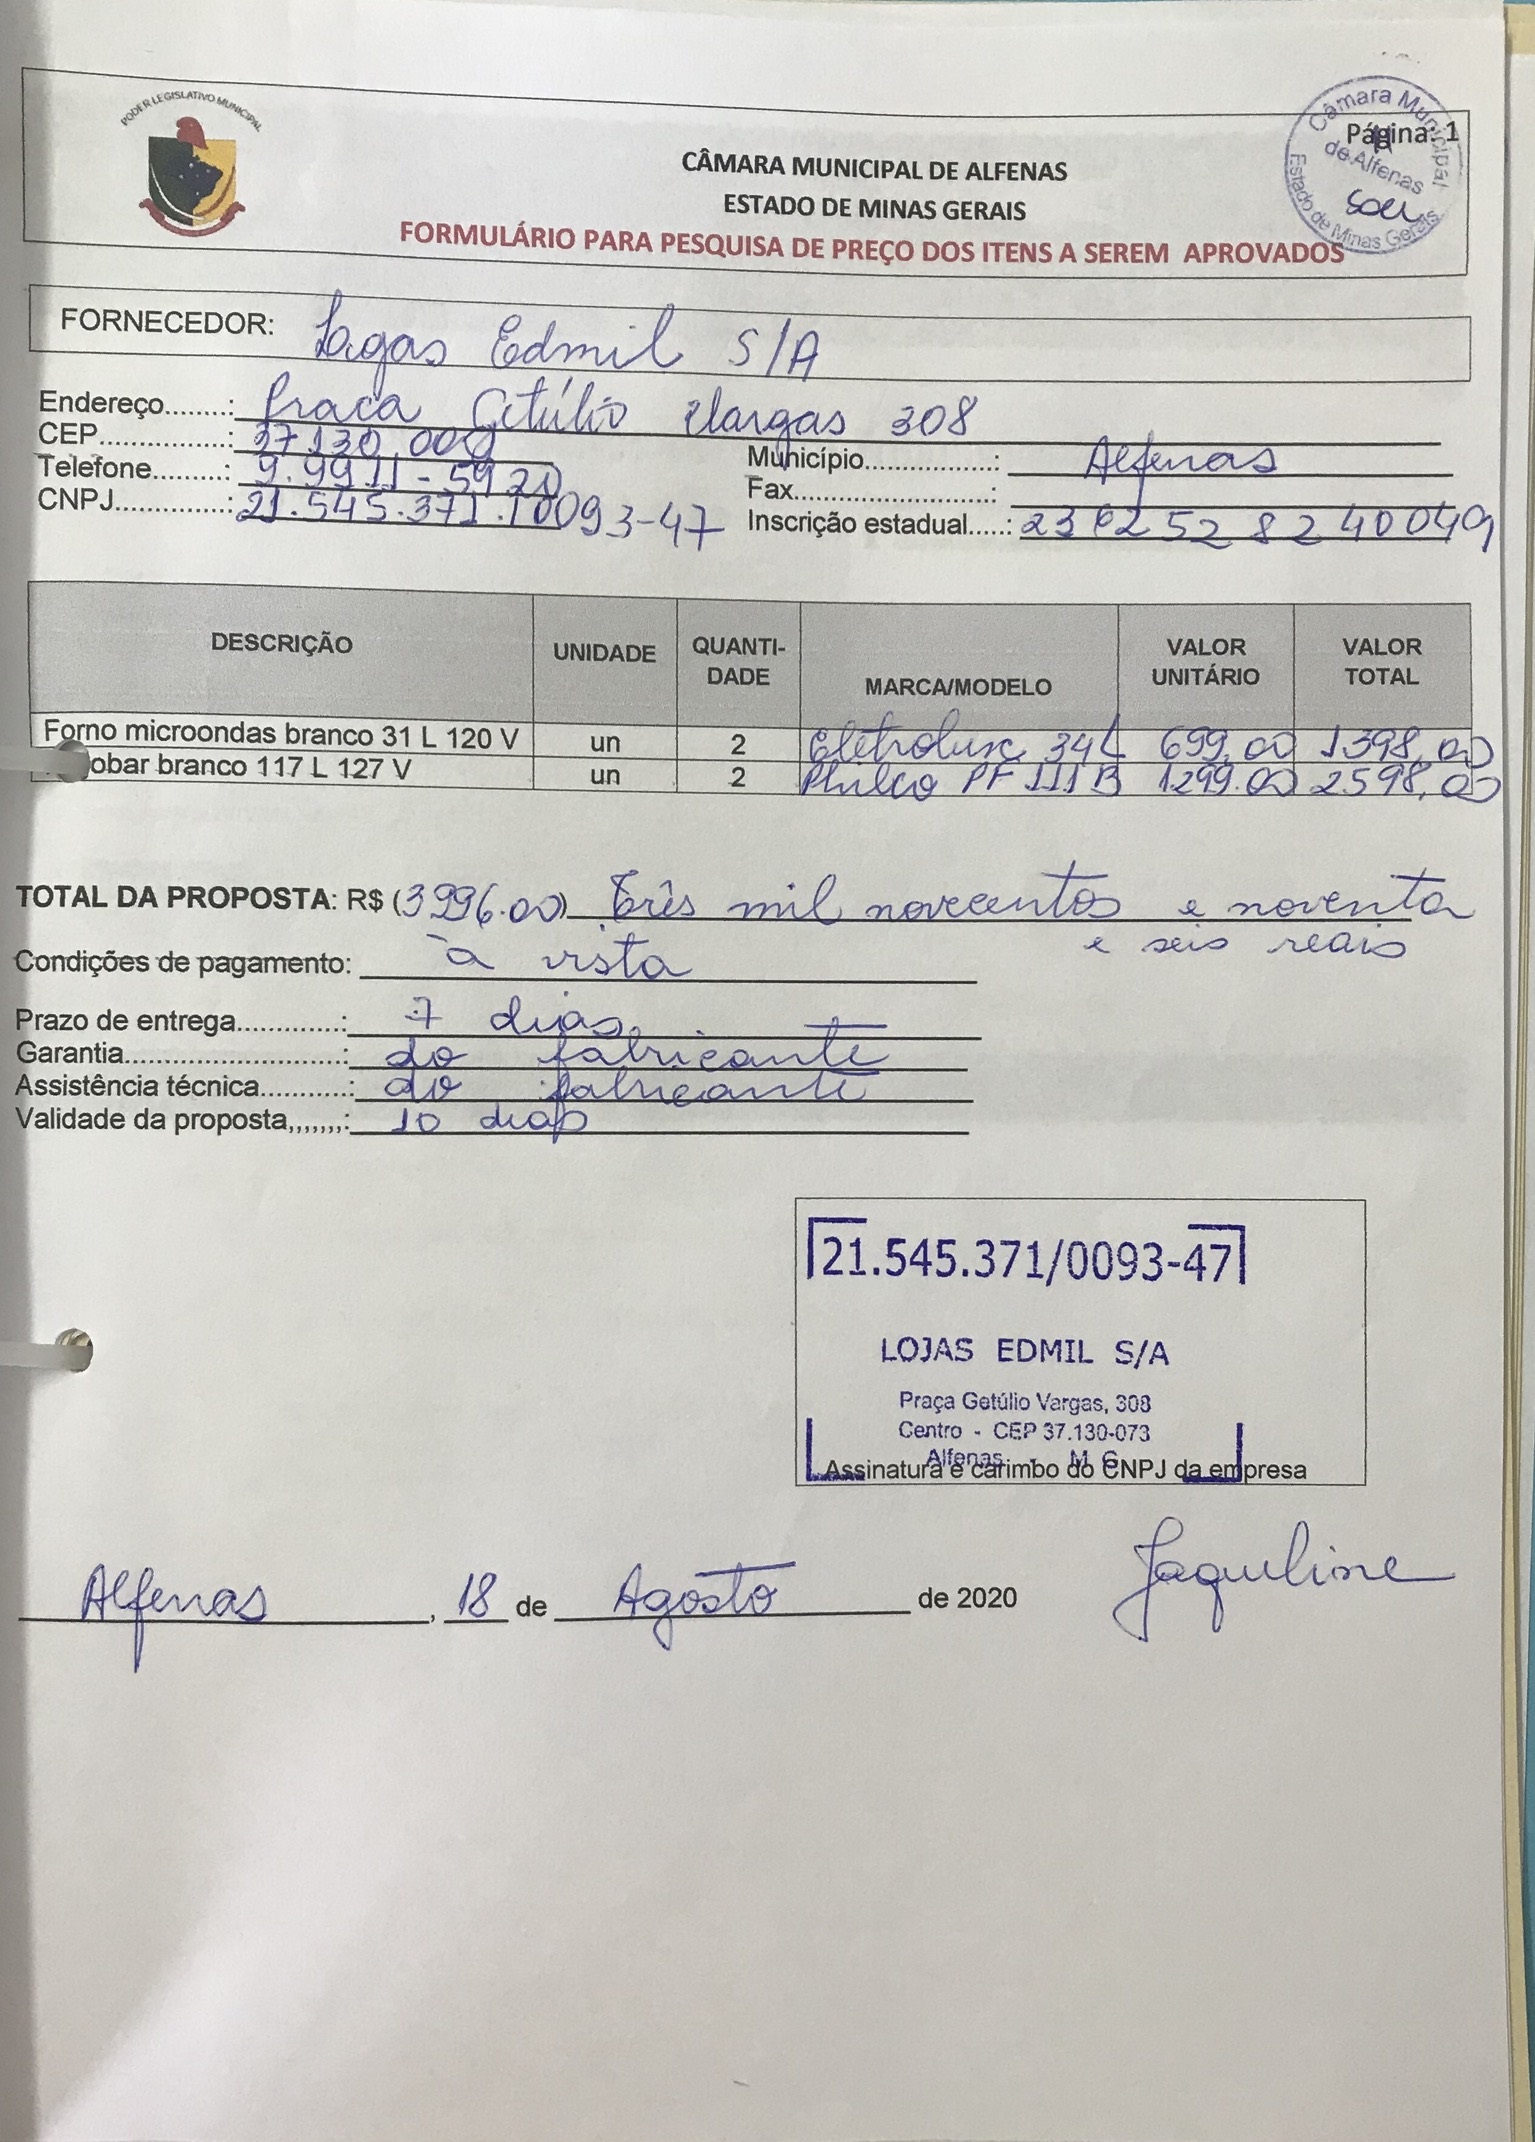 PODER LEGISLATIVO MUNICIPAL
Câmara Municipal
de Alfenas
Estado de Minas Gerais
Página: 1
CÂMARA MUNICIPAL DE ALFENAS
ESTADO DE MINAS GERAIS
FORMULÁRIO PARA PESQUISA DE PREÇO DOS ITENS A SEREM APROVADOS
FORNECEDOR: Lojas Edmil S/A
Endereço........: Praça Getúlio Vargas 308
CEP................: 37130 000
Município...............: Alfenas
Telefone..........: 9.9911-5920
Fax.........................:
CNPJ..............: 21.545.371.10093-47
Inscrição estadual.....:
DESCRIÇÃO UNIDADE QUANTI-DADE MARCA/MODELO VALOR UNITÁRIO VALOR TOTAL
Forno microondas branco 31 L 120 V un 2 Eletrolux 34L 699,00 1398,00
obar branco 117 L 127 V un 2 Philco PF 111 B 1299.00 2598,00
TOTAL DA PROPOSTA: R$ (3996.00) Três mil novecentos e noventa
e seis reais
Condições de pagamento: à vista
Prazo de entrega.............: 7 dias
Garantia...........................: do fabricante
Assistência técnica...........: do fabricante
Validade da proposta,,,,,,,: 10 dias
21.545.371/0093-47
LOJAS EDMIL S/A
Praça Getúlio Vargas, 308
Centro - CEP 37.130-073
Alfenas - M G
Assinatura e carimbo do CNPJ da empresa
Jaqueline
Alfenas, 18 de Agosto de 2020